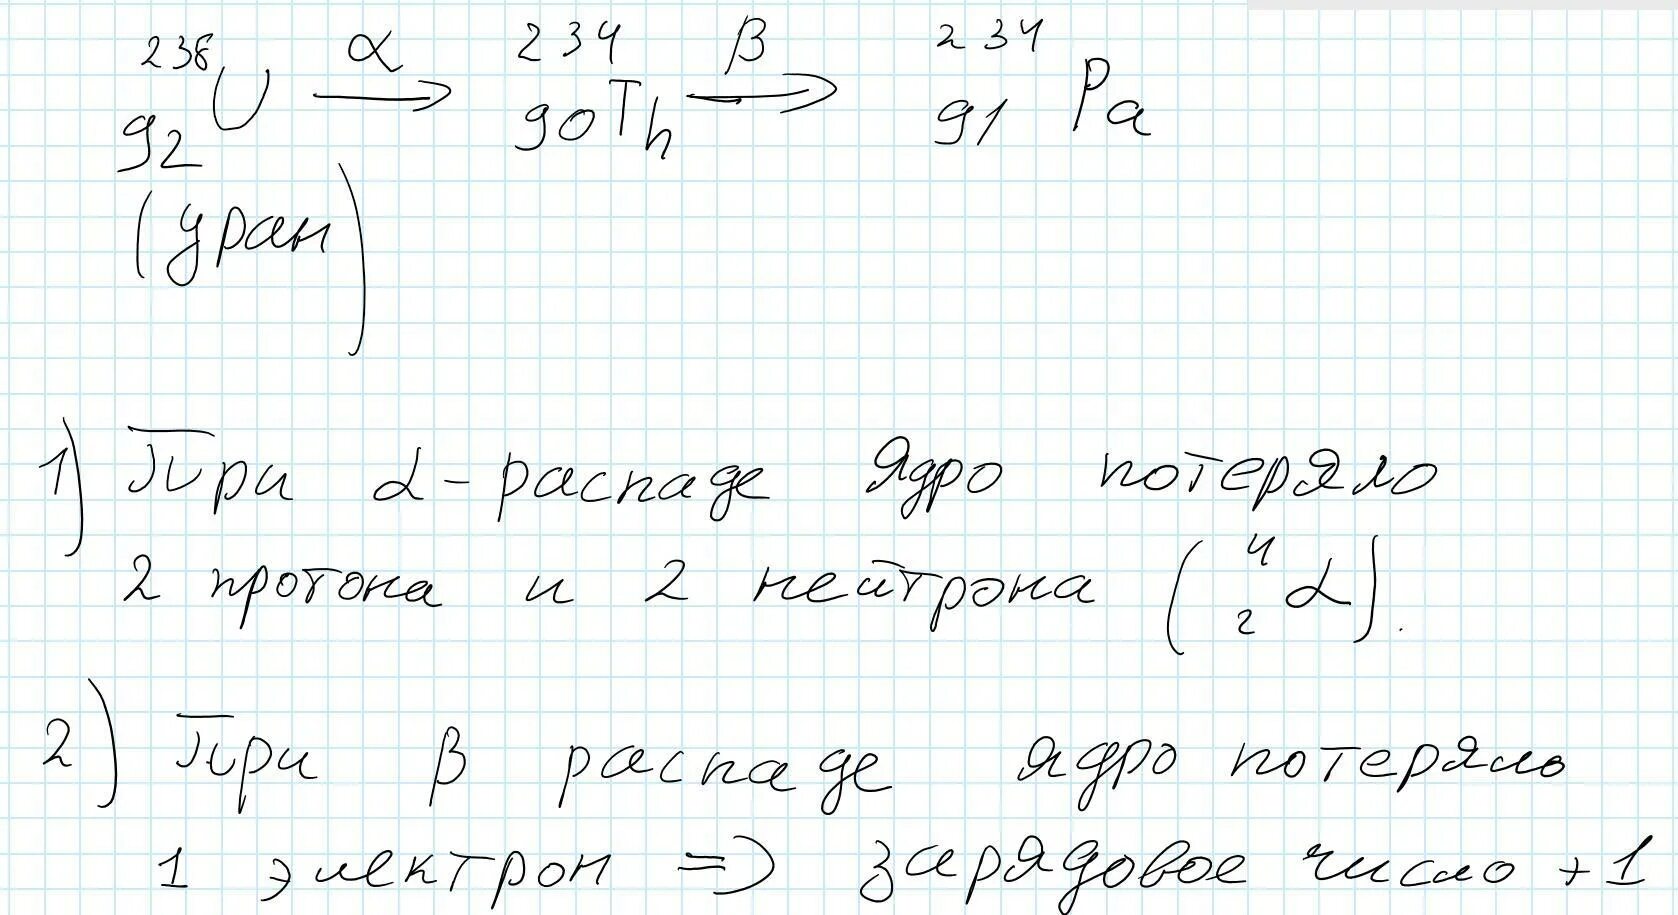 ²³⁸₉₂U α→ ²³⁴₉₀Th β→ ²³⁴₉₁Pa
(уран)
1) При α-распаде Ядро потеряло
2 протона и 2 нейтрона (⁴₂α).
2) При β распаде ядро потеряло
1 электрон => зарядовое число +1